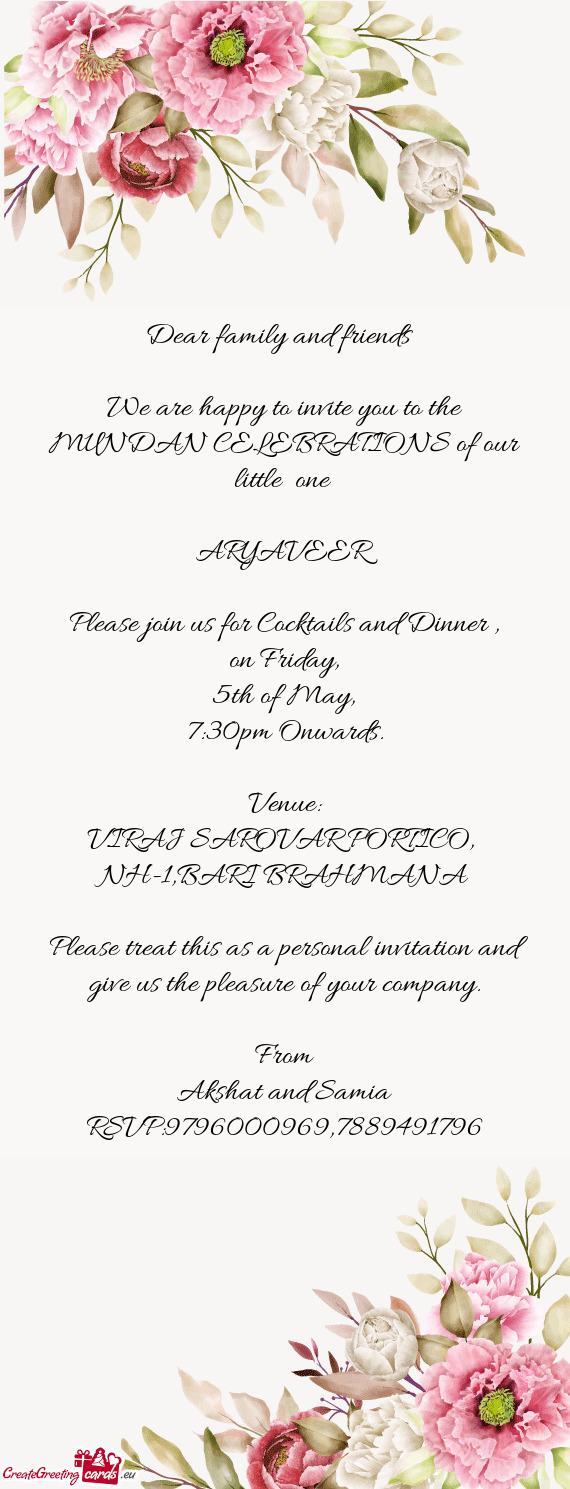 Dear family and friends
We are happy to invite you to the
MUNDAN CELEBRATIONS of our
little one
ARYAVEER
Please join us for Cocktails and Dinner ,
on Friday,
5th of May,
7:30pm Onwards.
Venue:
VIRAJ SAROVAR PORTICO,
NH-1,BARI BRAHMANA
Please treat this as a personal invitation and
give us the pleasure of your company.
From
Akshat and Samia
RSVP:9796000969,7889491796
CreateGreeting cards .eu